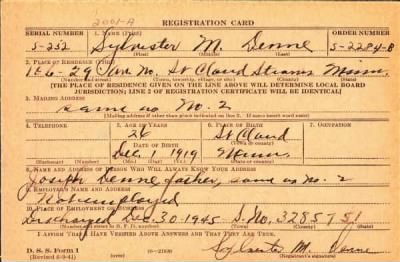 2001-A
REGISTRATION CARD
SERIAL NUMBER 1. NAME (Print) ORDER NUMBER
S-252 Sylvester M. Denne S-2284-B
(First) (Middle) (Last)
2. PLACE OF RESIDENCE (Print)
1626-29 Ave No. St Cloud Stearns Minn.
(Number and street) (Town, township, village, or city) (County) (State)
[THE PLACE OF RESIDENCE GIVEN ON THE LINE ABOVE WILL DETERMINE LOCAL BOARD
JURISDICTION; LINE 2 OF REGISTRATION CERTIFICATE WILL BE IDENTICAL]
3. MAILING ADDRESS
same as No. 2
[Mailing address if other than place indicated on line 2. If same insert word same]
4. TELEPHONE 5. AGE IN YEARS 6. PLACE OF BIRTH
26 St Cloud
DATE OF BIRTH
Dec. 1919 Minn.
(Exchange) (Number) (Mo.) (Day) (Yr.) (State or country)
7. OCCUPATION
8. NAME AND ADDRESS OF PERSON WHO WILL ALWAYS KNOW YOUR ADDRESS
Joseph Denne, father, same as no. 2
9. EMPLOYER'S NAME AND ADDRESS
Not employed
10. PLACE OF EMPLOYMENT OR BUSINESS
Discharged Dec. 30 1945 S. No. 328575
(Number and street or R. F. D. number) (Town) (County) (State)
I AFFIRM THAT I HAVE VERIFIED ABOVE ANSWERS AND THAT THEY ARE TRUE.
D. S. S. Form 1
(Revised 6-9-41) (Registrant's signature)
Sylvester M. Denne